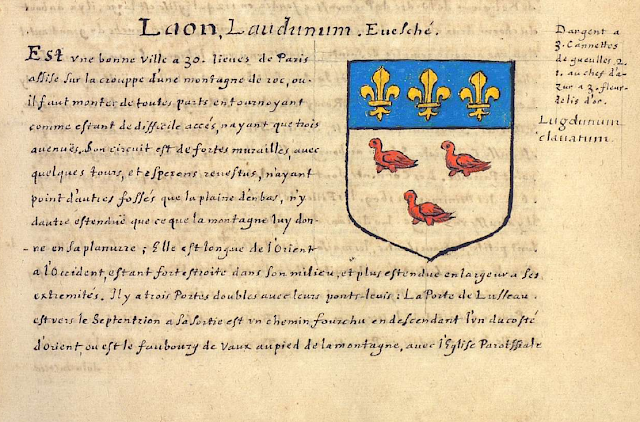 Laon, Laudunum. Euesché.
Est vne bonne ville a 30. lieues de Paris
assise sur la crouppe d'une montagne de roc, ou
il faut monter de toutes parts en tournoyant
comme estant de difficile accés, n'ayant que trois
auenuës. Son circuit est de fortes murailles, auec
quelques tours, et esperons reuestus, n'ayant
point d'autres fossés que la plaine d'enbas, n'y
d'autre estenduë que ce que la montagne luy don-
ne en sa planure; Elle est longue de l'Orient
a l'Occident, estant fort estroite dans son milieu, et plus estendue en largeur a ses
extremités. Il y a trois Portes doubles auec leurs ponts-leuis: La Porte de Lusseau
est vers le Septentrion a sa sortie est vn chemin fourchu en descendant l'vn du costé
d'Orient, ou est le fauboury de Vaux au pied de la montagne, auec l'Eglise Paroissiale
D'argent a
3. Cannettes
de gueulles. 2.
1. au chef d'a-
zur a 3. fleur-
delis d'or.
Lugdunum
clauatum.